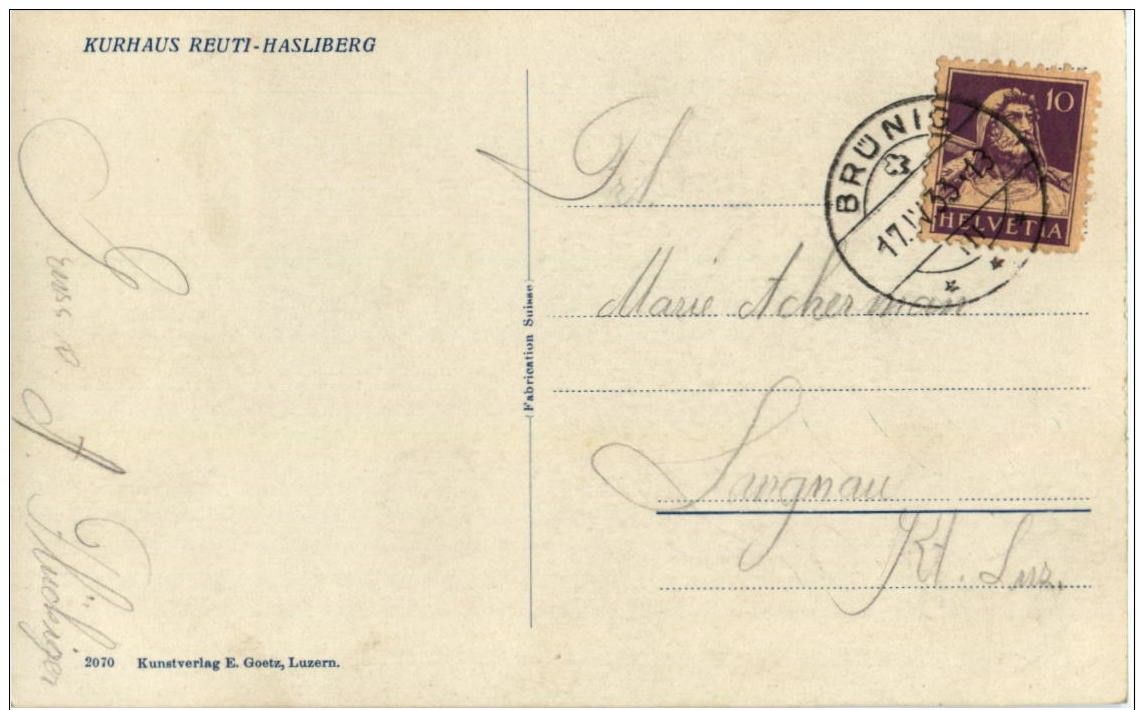 KURHAUS REUTI-HASLIBERG
10
HELVETIA
BRÜNIG
17.IV.33-13
Frl.
Marie Acherman
Langnau
Kt. Luz.
Fabrication Suisse
Gruss v.
2070 Kunstverlag E. Goetz, Luzern.